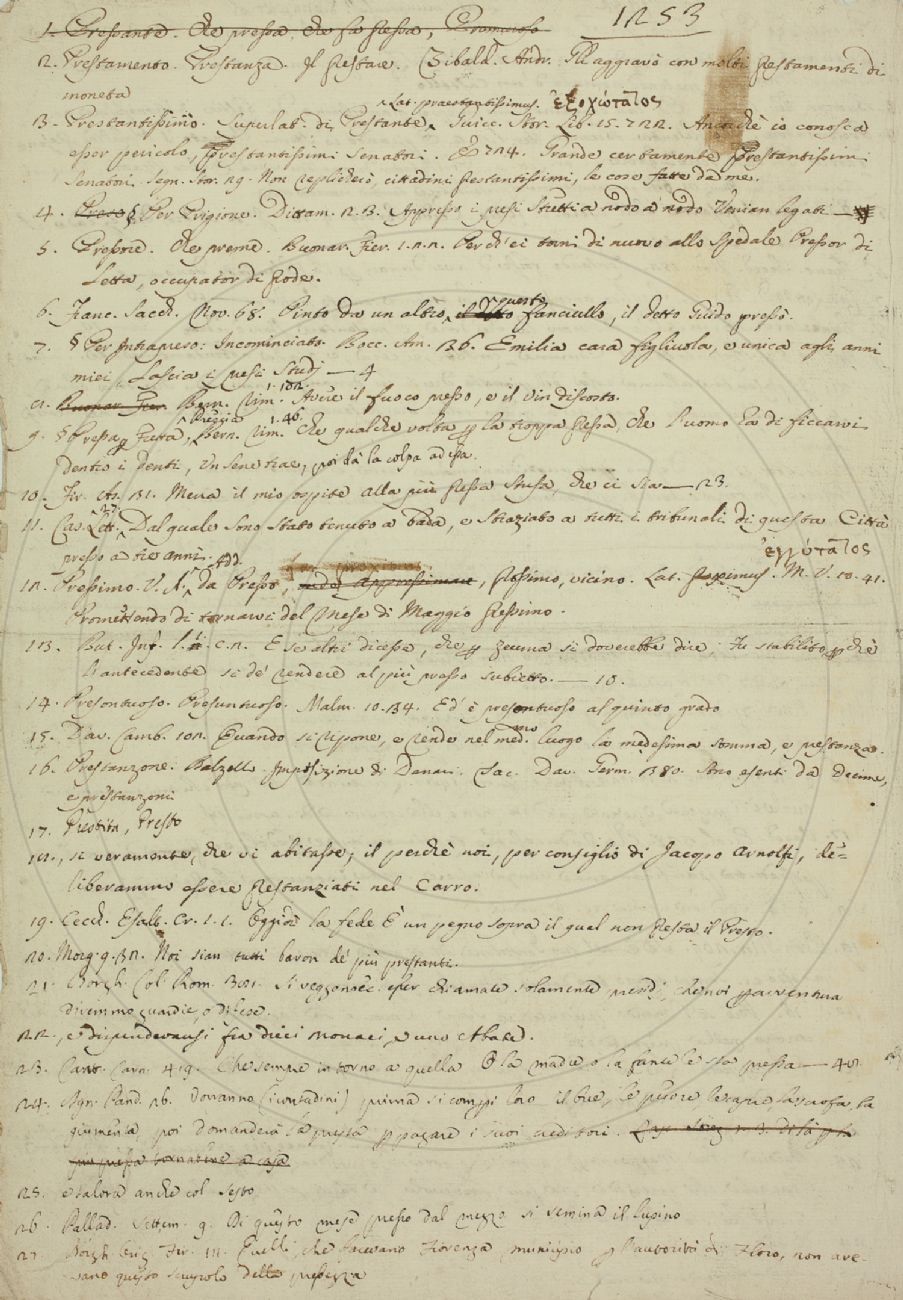 1253
1. Pressante. Che pressa, che fa pressa, Premuroso
2. Prestamento. Prestanza. Il prestare. Zibald. Andr. Gli aggravò con molti prestamenti di
moneta
Lat. praestantissimus. ἐξοχώτατος
3. Prestantissimo. Superlat. di Prestante. Guicc. Stor. Lib. 15. 722. Ancorchè io conosca
esser pericolo, Prestantissimi Senatori. E 724. Grande certamente Prestantissimi
Senatori. Segn. Stor. 29. Non replicherò, cittadini prestantissimi, le cose fatte da me.
4. Preso § Per Prigione. Dittam. 2. 3. Appresso i presi stretti a nodo a nodo Venian legati —
5. Pressore. Che preme. Buonar. Fier. 1. 2. 2. Perch' ei torni di nuovo allo spedale Pressor di
Letta, occupator di prode.
6. Franc. Sacch. Nov. 68. Pinto da un altro, questo fanciullo, il detto Guido pressò.
7. § Per Intrapreso: Incominciato Bocc. An. 36. Emilia cara figliuola, e unica agli anni
miei, Lascia i presi studj — 4
8. Buonar. Fier. Bern. Rim. 1. 102. Avere il fuoco presso, e il vin discosto.
9. § Pressa per Furia, Bern. Rim. 1. 46. Che qualche volta per la troppa pressa, Che l'uomo ha di ficcarvi
dentro i denti, Un sene trae, poi dà la colpa ad essa.
10. Fir. As. 131. Mena il mio ospite alla più pressa stufa, che ci sia — 23.
11. Car. Lett. Dal quale sono stato tenuto a bada, e straziato a tutti i tribunali di questa Città
presso a tre anni.
ἐγγύτατος
12. Pressimo. V. A. Add. da Presso, Prossimo, vicino. Lat. proximus. M. V. 10. 41.
Promettendo di tornarvi del Mese di Maggio pressimo.
13. But. Inf. 1. C. 2. E se altri dicesse, che per zeuma si doverebbe dire; Fu stabilito per chè
l'antecedente si de' rendere al più presso subietto. — 10.
14. Presontuoso. Presuntuoso. Malm. 10. 34. Ed è presontuoso al quinto grado
15. Dav. Camb. 102. Quando si ripone, e rende nel med.mo luogo la medesima somma, e prestanza.
16. Prestanzone. Balzello Imposizione di Danari. Sac. Dav. Germ. 380. Sono esenti da decime,
e prestanzoni
17. Prestita, Presto
18., si veramente, che vi abitasse; il perchè noi, per consiglio di Jacopo Arnolfi, de-
liberammo essere prestanziati nel Carro.
19. Cecch. Esalt. Cr. 1. 1. Oggidì la fede È un pegno sopra il qual non presta il Presto.
20. Morg. 9. 32. Noi sian tutti baron de' più prestanti.
21. Borgh. Col. Rom. 381. Si veggono esser chiamate solamente presidj, che noi per avventura
diremmo guardie, o difese.
22., e dispenderansi fra dieci monaci, e uno Abate.
23. Cant. Carn. 419. Che sempre intorno a quella O la madre o la fante le sta pressa — 48
24. Agn. Pand. 26. Dovranno (i contadini) prima si compri loro il bue, le pecore le capre la scrofa la
giumenta, poi domanderà la presta per pagare i suoi creditori.
25. e talora anche col sesto
26. Pallad. Settem. 9. Di questo mese presso dal mezzo si semina il lupino
27. Borgh. Orig. Fir. 12. Quelli, che facevano Fiorenza municipio per l'autorità di Floro, non ave-
vano questo scrupolo della presezza